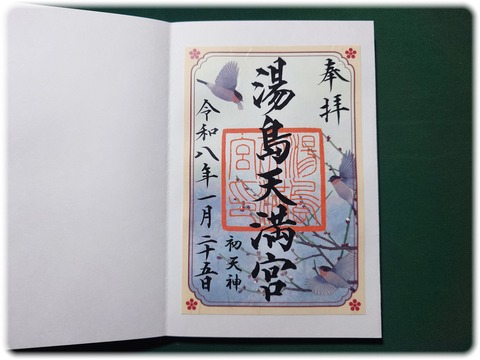 奉拝
湯島天満宮
初天神
令和八年一月二十五日